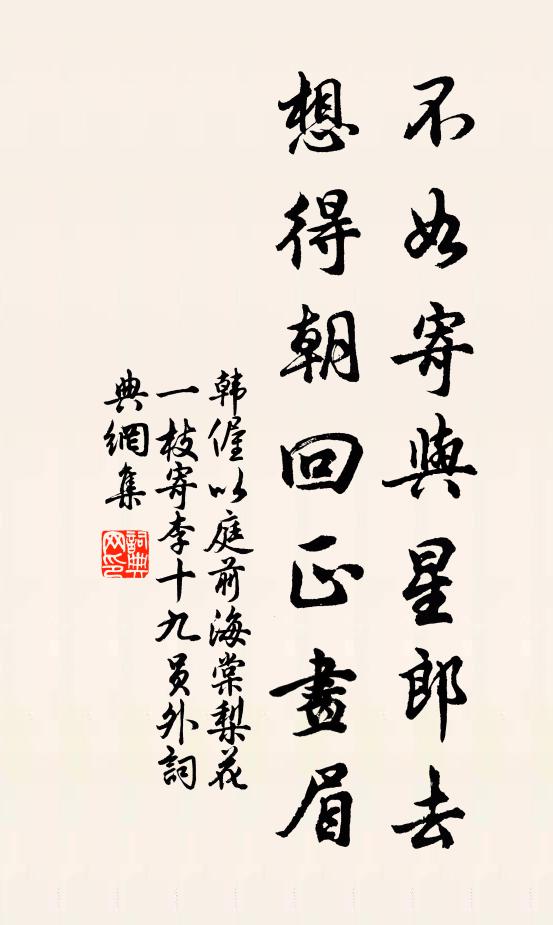 不如寄與星郎去
想得朝回正畫眉
韩偓以庭前海棠梨花
一枝寄李十九員外詞
典網集
詞典
网印